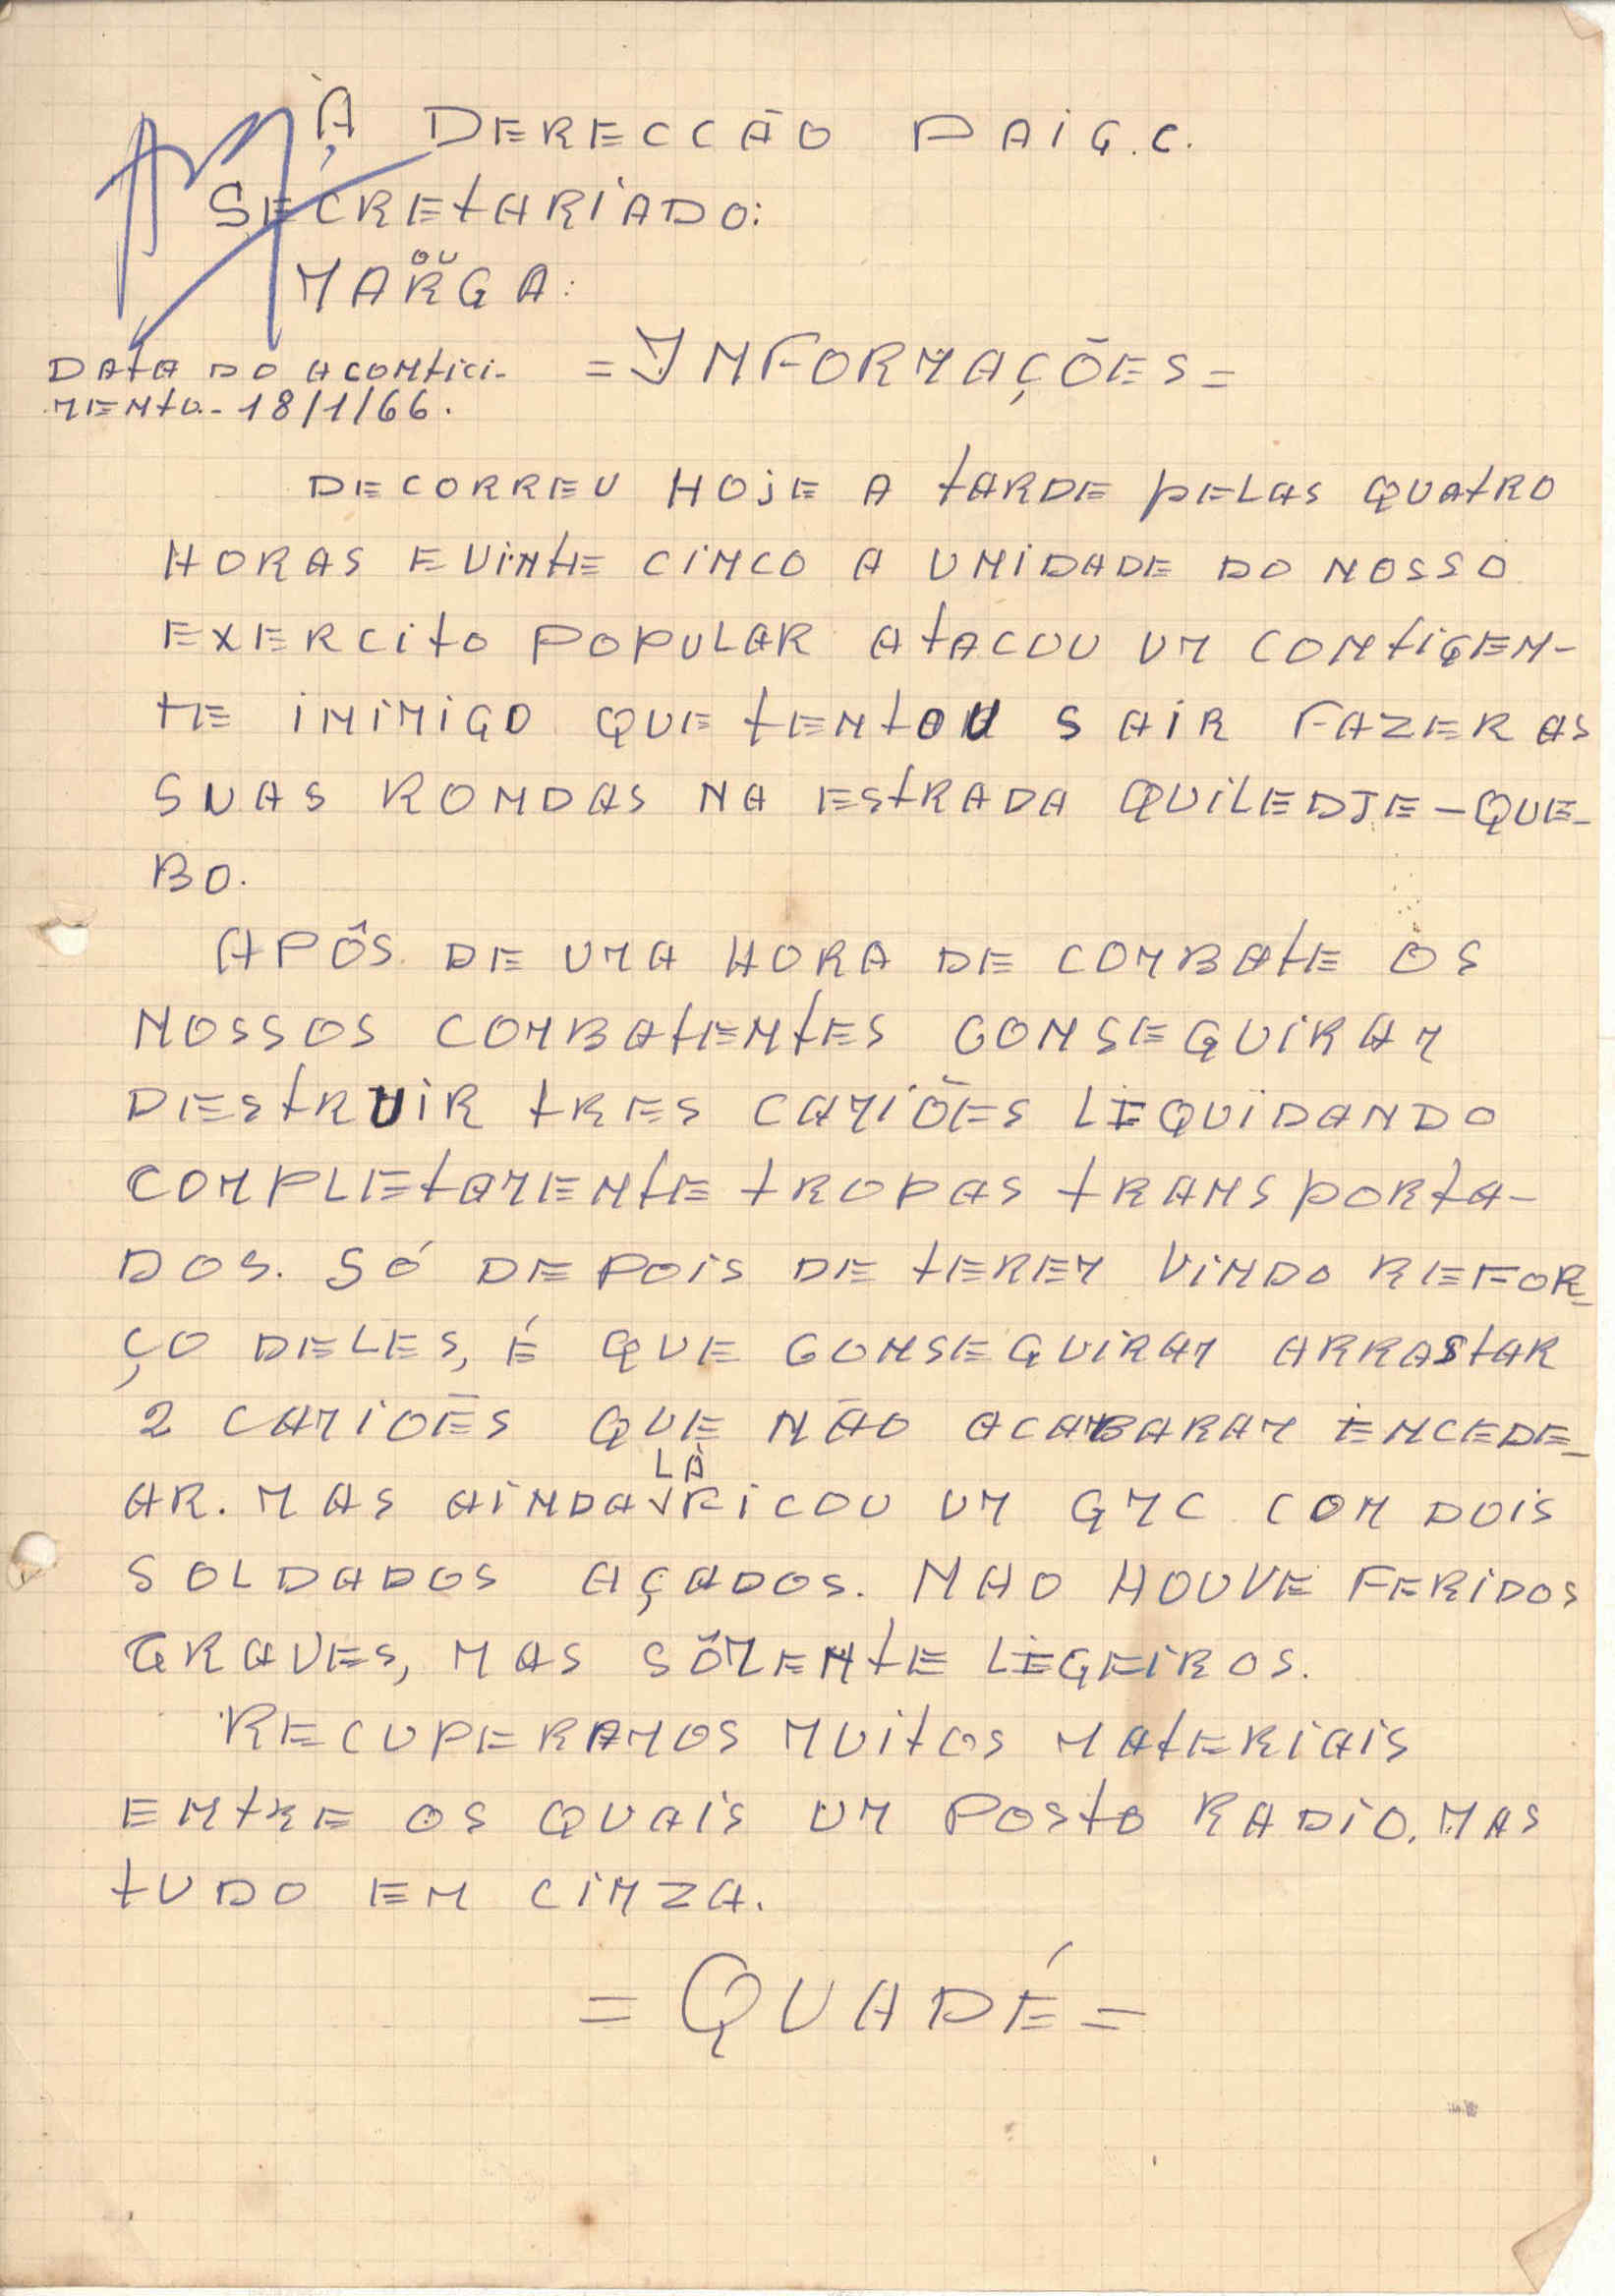 À DERECCÃO PAIG.C.
SECRETARIADO:
OU
MARGA:
DATA DO ACONTICI-
MENTO.- 18/1/66.
= INFORMAÇÕES =
DECORREU HOJE A TARDE PELAS QUATRO
HORAS E VINTE CINCO A UNIDADE DO NOSSO
EXERCITO POPULAR ATACOU UM CONTIGEN-
TE INIMIGO QUE TENTOU SAIR FAZER AS
SUAS RONDAS NA ESTRADA QUILEDJE-QUE-
BO.
APÔS DE UMA HORA DE COMBATE OS
NOSSOS COMBATENTES CONSEGUIRAM
DESTRUIR TRES CAMIÕES LIQUIDANDO
COMPLETAMENTE TROPAS TRANSPORTA-
DOS. SÓ DEPOIS DE TEREM VINDO REFOR-
ÇO DELES, É QUE CONSEGUIRAM ARRASTAR
2 CAMIOẼS QUE NÃO ACABARAM ENCEDE-
AR. MAS AINDA LÀ FICOU UM GMC COM DOIS
SOLDADOS AÇADOS. NAO HOUVE FERIDOS
GRAVES, MAS SÒMENTE LIGEIROS.
RECUPERAMOS MUITOS MATERIAIS
ENTRE OS QUAIS UM POSTO RADIO. MAS
TUDO EM CINZA.
= QUADÉ =